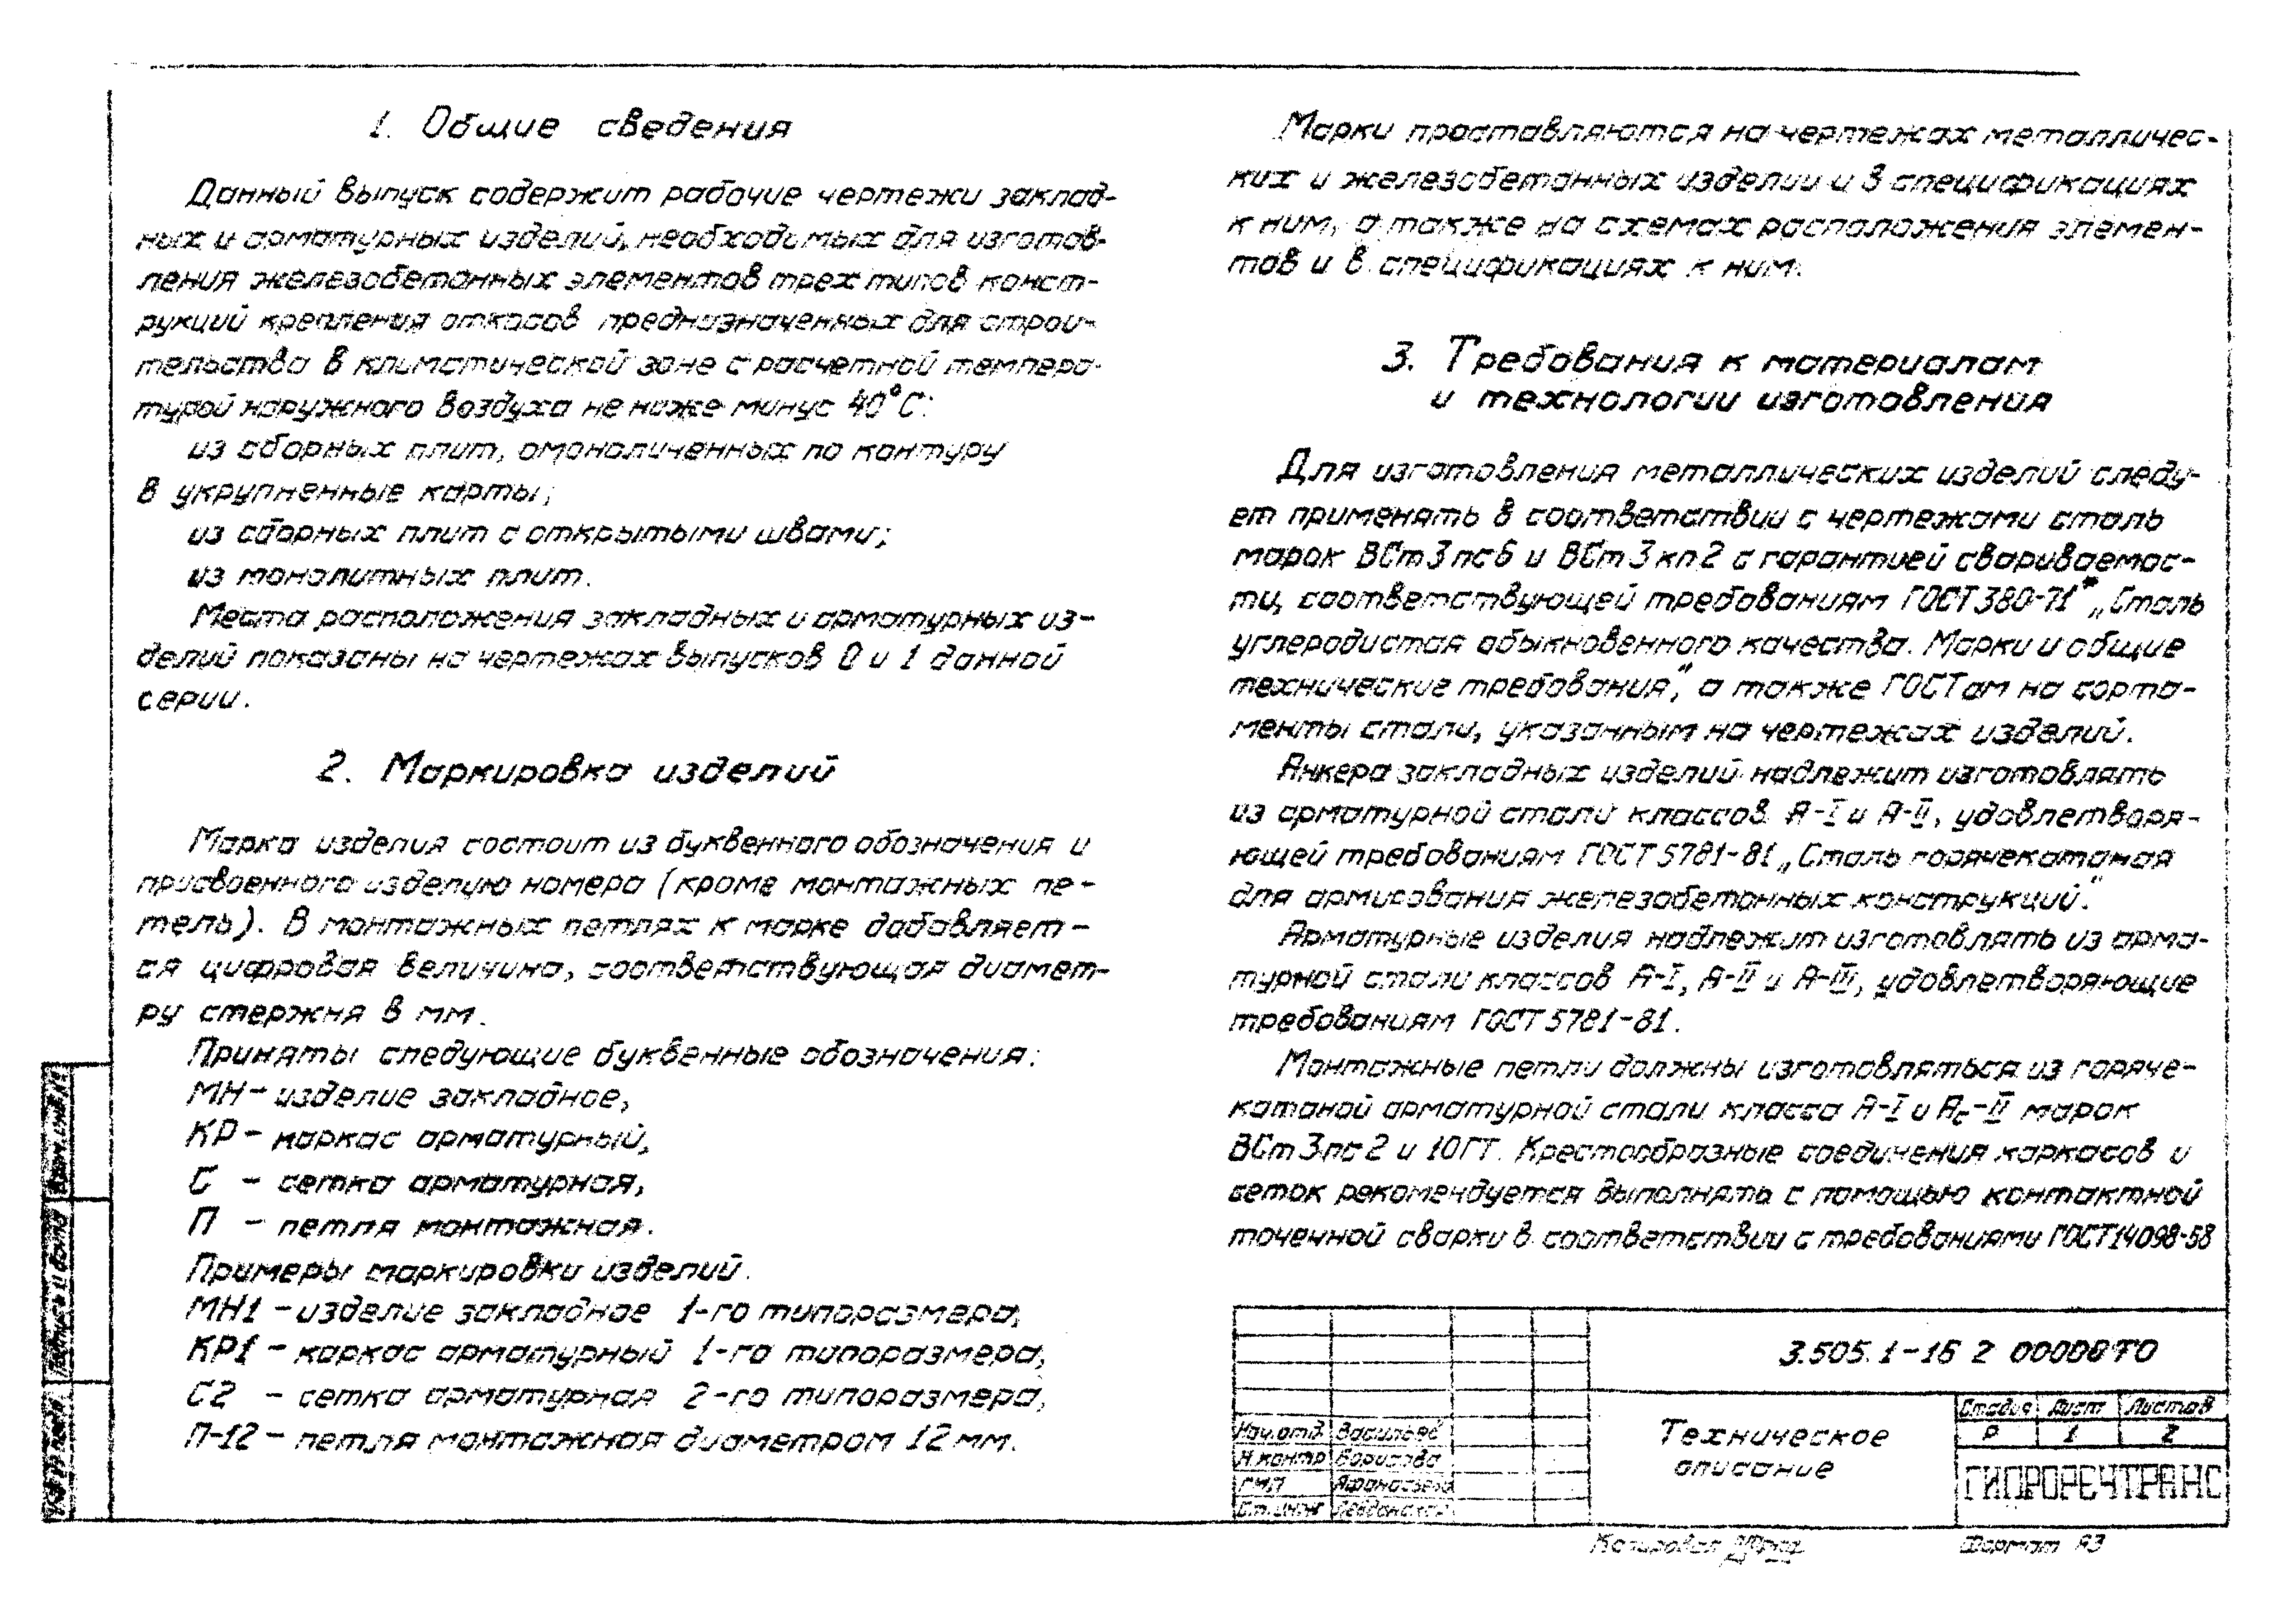 1. Общие сведения
Данный выпуск содержит рабочие чертежи заклад-
ных и арматурных изделий, необходимых для изготов-
ления железобетонных элементов трех типов конст-
рукций крепления откосов предназначенных для строи-
тельства в климатической зоне с расчетной темпера-
турой наружного воздуха не ниже минус 40°С:
из сборных плит, омоноличенных по контуру
в укрупненные карты;
из сборных плит с открытыми швами;
из монолитных плит.
Места расположения закладных и арматурных из-
делий показаны на чертежах выпусков 0 и 1 данной
серии.
2. Маркировка изделий
Марка изделия состоит из буквенного обозначения и
присвоенного изделию номера (кроме монтажных пе-
тель). В монтажных петлях к марке добавляет-
ся цифровая величина, соответствующая диамет-
ру стержня в мм.
Приняты следующие буквенные обозначения:
МН – изделие закладное,
КР – каркас арматурный,
С – сетка арматурная,
П – петля монтажная.
Примеры маркировки изделий.
МН1 – изделие закладное 1-го типоразмера,
КР1 – каркас арматурный 1-го типоразмера,
С2 – сетка арматурная 2-го типоразмера,
П-12 – петля монтажная диаметром 12 мм.
Марки проставляются на чертежах металличес-
ких и железобетонных изделий и в спецификациях
к ним, а также на схемах расположения элемен-
тов и в спецификациях к ним.
3. Требования к материалам
и технологии изготовления
Для изготовления металлических изделий следу-
ет применять в соответствии с чертежами сталь
марок ВСт3пс6 и ВСт3кп2 с гарантией свариваемос-
ти, соответствующей требованиям ГОСТ 380-71* „Сталь
углеродистая обыкновенного качества. Марки и общие
технические требования", а также ГОСТам на сорта-
менты стали, указанным на чертежах изделий.
Анкера закладных изделий надлежит изготовлять
из арматурной стали классов А-I и А-II, удовлетворя-
ющей требованиям ГОСТ 5781-81 „Сталь горячекатаная
для армирования железобетонных конструкций".
Арматурные изделия надлежит изготовлять из арма-
турной стали классов А-I, А-II и А-III, удовлетворяющие
требованиям ГОСТ 5781-81.
Монтажные петли должны изготовляться из горяче-
катаной арматурной стали класса А-I и Ас-II марок
ВСт3пс2 и 10ГТ. Крестообразные соединения каркасов и
сеток рекомендуется выполнять с помощью контактной
точечной сварки в соответствии с требованиями ГОСТ 14098-68
3.505.1-15 2 0000ВТО
Техническое
описание
Стадия Лист Листов
Р 1 2
ГИПРОРЕЧТРАНС
Нач.отд. Васильев
Н.контр Борисова
ГИП Афанасьева
Ст.инж
Копировал
Формат А3
Взам.инв.№
Подпись и дата